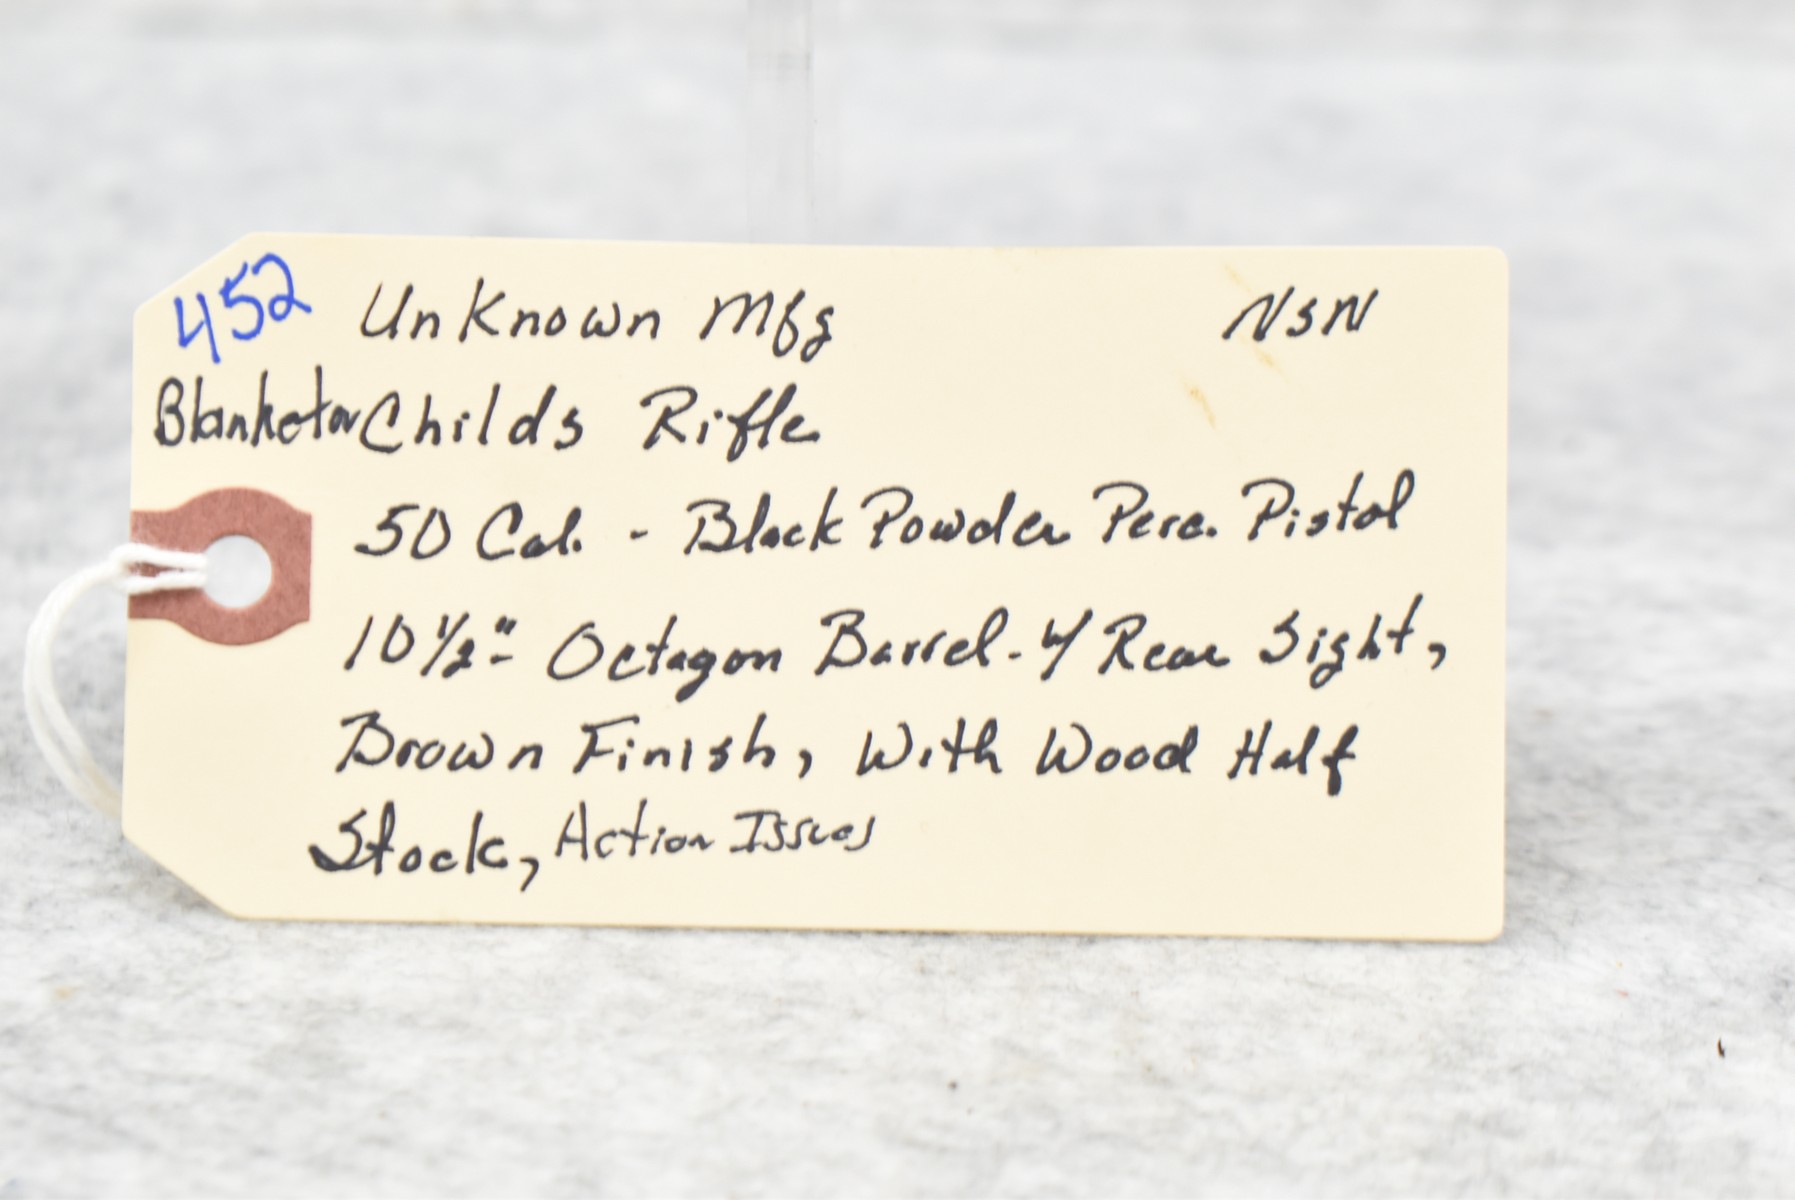 452 Unknown Mfg NSN
Blanket or Childs Rifle
50 Cal. - Black Powder Perc. Pistol
10 1/2" - Octagon Barrel - w/ Rear Sight,
Brown Finish, With Wood Half
Stock, Action Issues